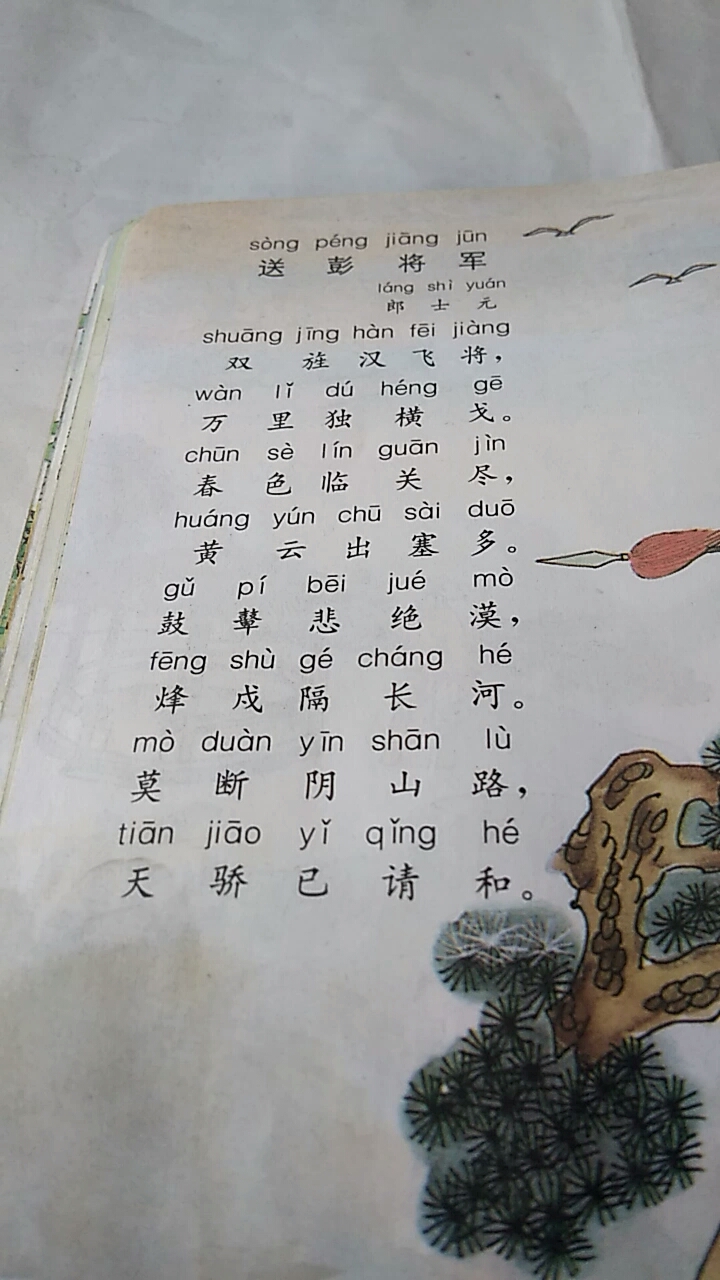 sòng péng jiāng jūn
送 彭 将 军
láng shì yuán
郎 士 元
shuāng jīng hàn fēi jiàng
双 旌 汉 飞 将，
wàn lǐ dú héng gē
万 里 独 横 戈。
chūn sè lín guān jìn
春 色 临 关 尽，
huáng yún chū sài duō
黄 云 出 塞 多。
gǔ pí bēi jué mò
鼓 鼙 悲 绝 漠，
fēng shù gé cháng hé
烽 戍 隔 长 河。
mò duàn yīn shān lù
莫 断 阴 山 路，
tiān jiāo yǐ qǐng hé
天 骄 已 请 和。